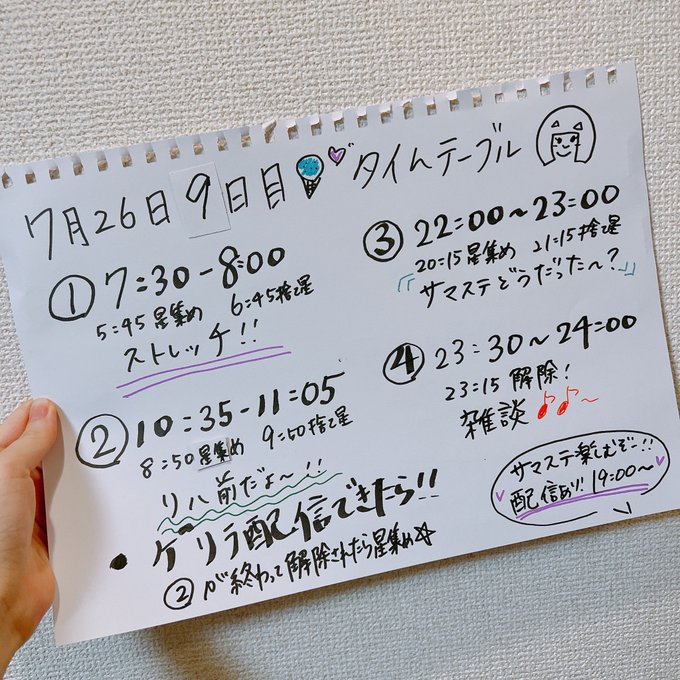 7月26日9日目 タイムテーブル
① 7:30-8:00
5:45 星集め 6:45捨て星
ストレッチ!!
② 10:35-11:05
8:50 星集め 9:50捨て星
リハ前だよ〜!!
• ゲリラ配信できたら!!
②が終わって解除されたら星集め☆
③ 22:00〜23:00
20:15星集め 21:15捨て星
『サマステどうだった〜?』
④ 23:30〜24:00
23:15 解除!
雑談♪♪〜
サマステ楽しむぞー!!
配信あり! 19:00〜